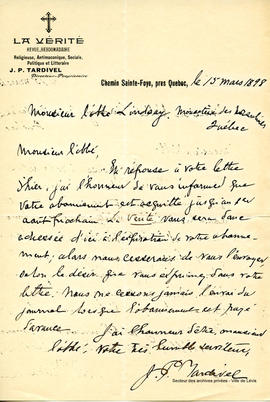 LA VÉRITÉ
REVUE HEBDOMADAIRE
Religieuse, Antimaçonnique, Sociale,
Politique et Littéraire
J. P. TARDIVEL
Directeur-Propriétaire
Chemin Sainte-Foye, près Québec, le 15 mars 1898
Monsieur l'abbé Lindsay,
Québec
Monsieur l'abbé
En réponse à votre lettre
d'hier, j'ai l'honneur de vous informer que
votre abonnement est acquitté jusqu'au 1er
août prochain. La Vérité vous sera donc
adressée d'ici à l'expiration de votre abonne-
ment, alors nous cesserons de vous l'envoyer
selon le désir que vous exprimez dans votre
lettre. Nous ne cessons jamais l'envoi du
journal lorsque l'abonnement est payé
d'avance.
J'ai l'honneur d'être, monsieur
l'abbé, votre très humble serviteur,
J. P. Tardivel
Secteur des archives privées - Ville de Lévis